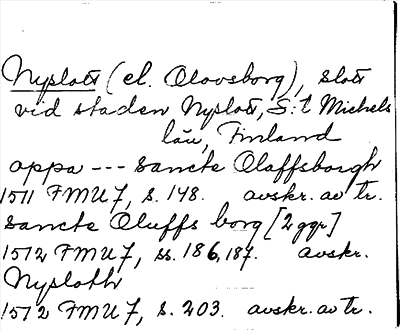 Nyslott (el. Olovsborg), slott
vid staden Nyslott, S:t Michels
län, Finland
oppa --- Sancte Olaffsborgh
1511 FMU 7, s. 148. avskr. av tr.
Sancte Oluffs borg [2 ggr]
1512 FMU 7, ss. 186, 187. avskr.
Nysloth
1512 FMU 7, s. 203. avskr. av tr.